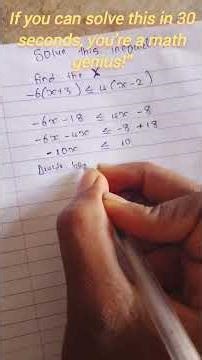 If you can solve this in 30
seconds, you're a math
genius!"
Solve this
find the x
-6(x+3) ≤ 4(x-2)
-6x-18 ≤ 4x-8
-6x-4x ≤ -8+18
-10x ≤ 10